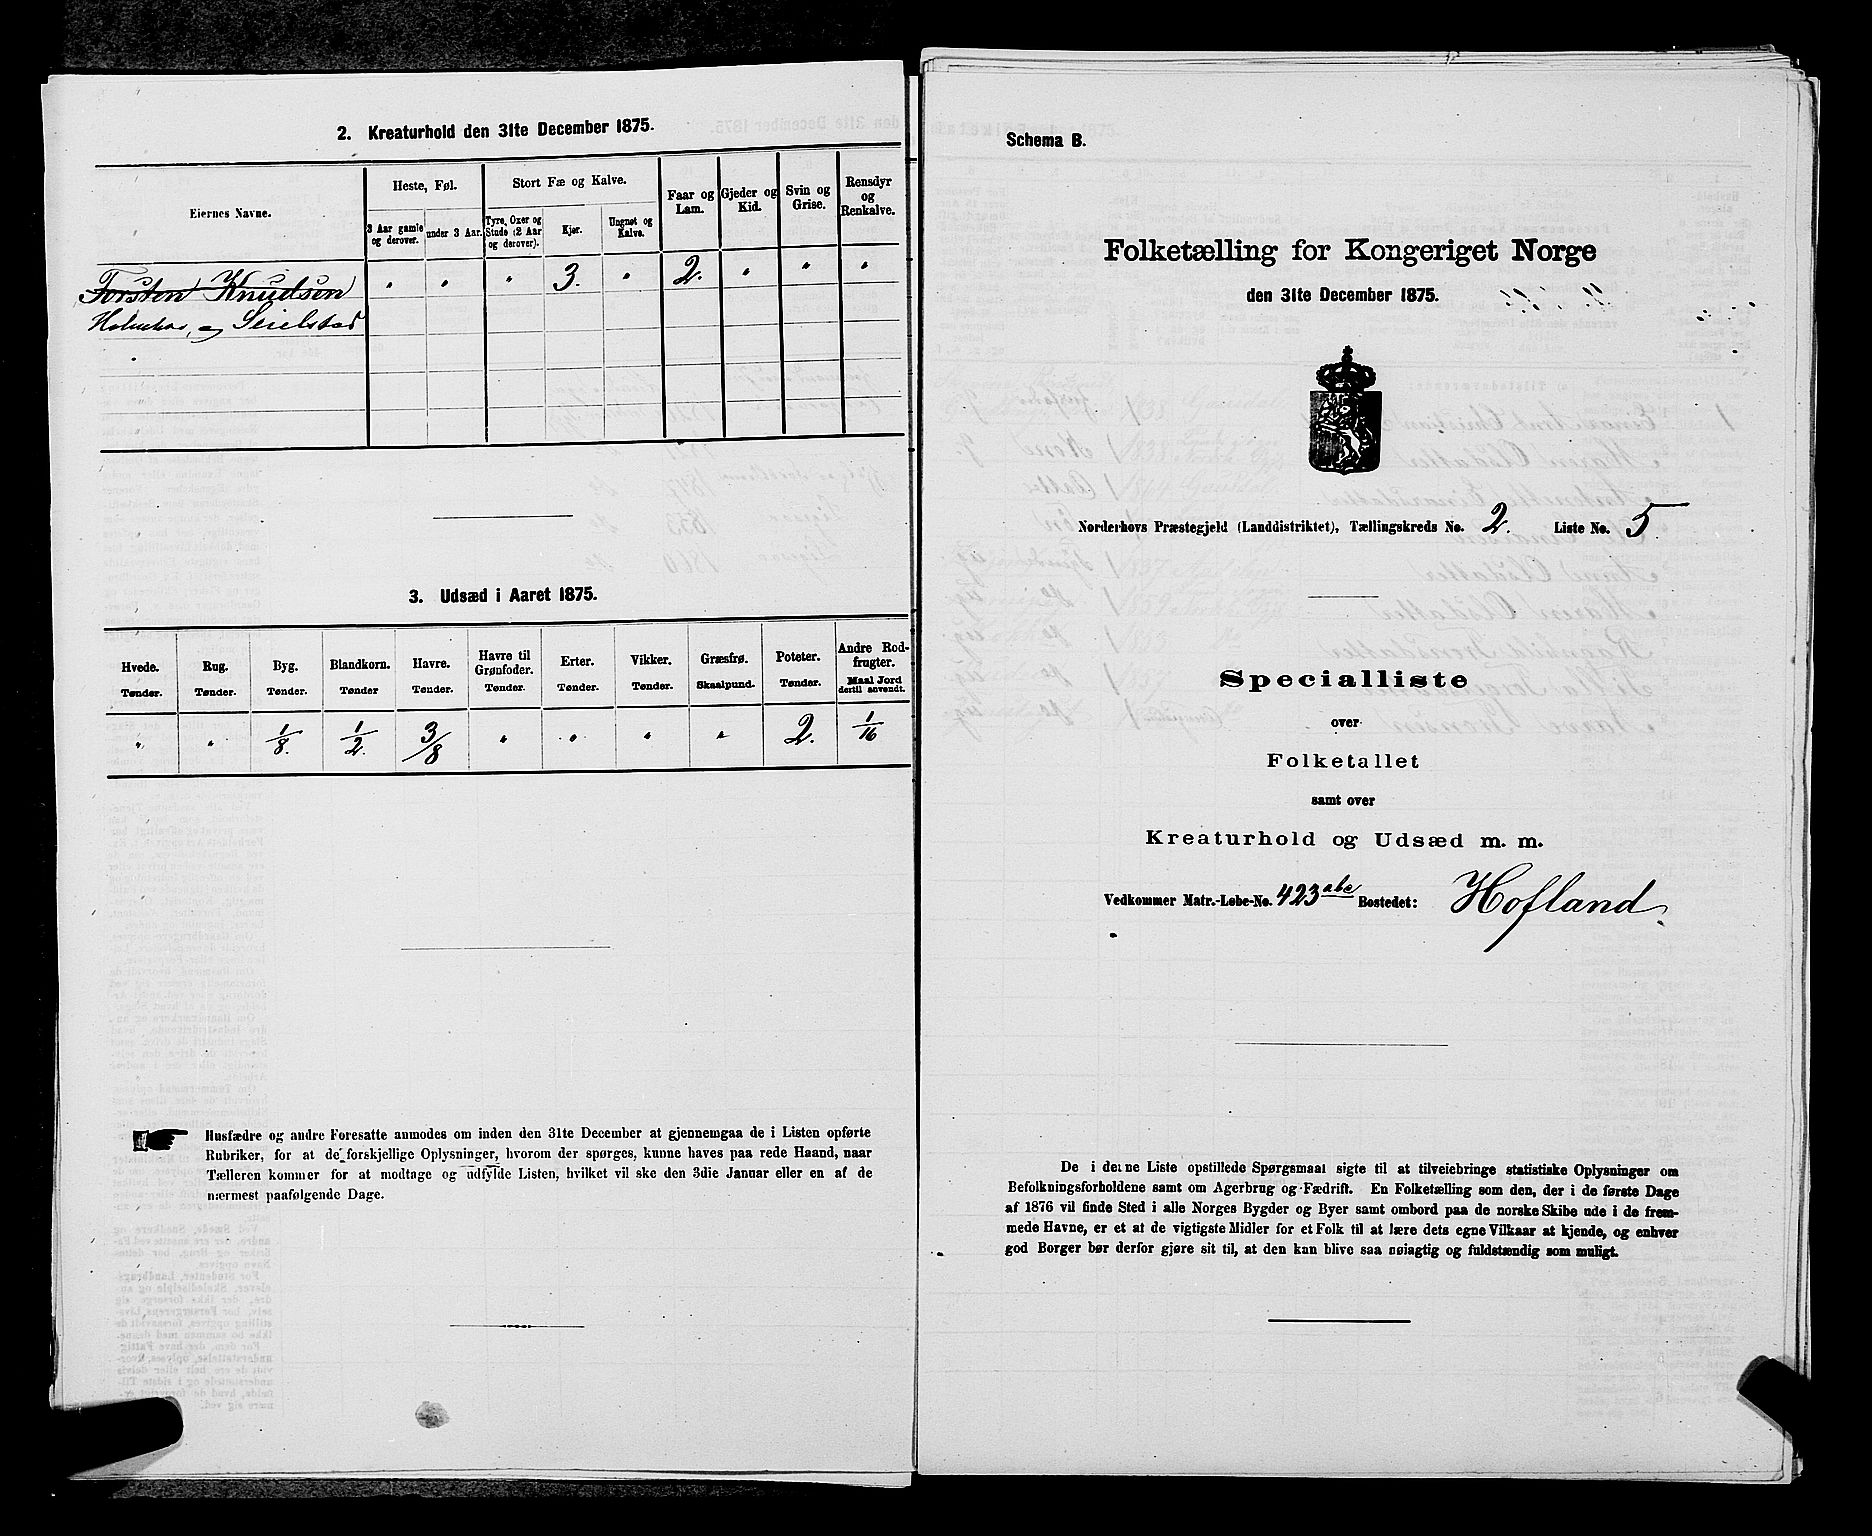 2. Kreaturhold den 31te December 1875.
Eiernes Navne.
Heste, Føl.
3 Aar gamle og derover.
under 3 Aar.
Stort Fæ og Kalve.
Tyre, Oxer og Stude (2 Aar og derover).
Kjør.
Ungnøt og Kalve.
Faar og Lam.
Gjeder og Kid.
Svin og Grise.
Rensdyr og Renkalve.
Torsten Knudsen " " " 3. " 2. " " "
og Seielstad
3. Udsæd i Aaret 1875.
Hvede. Tønder.
Rug. Tønder.
Byg. Tønder.
Blandkorn. Tønder
Havre. Tønder.
Havre til Grønfoder. Tønder.
Erter. Tønder.
Vikker. Tønder.
Græsfrø. Skaalpund.
Poteter. Tønder.
Andre Rodfrugter. Maal Jord dertil anvendt.
" " 1/8. 1/2. 3/8 " " " " 2. 1/16
Husfædre og andre Foresatte anmodes om inden den 31te December at gjennemgaa de i Listen opførte
Rubriker, for at de forskjellige Oplysninger, hvorom der spørges, kunne haves paa rede Haand, naar
Tælleren kommer for at modtage og udfylde Listen, hvilket vil ske den 3die Januar eller en af de
nærmest paafølgende Dage.
Schema B.
Folketælling for Kongeriget Norge
den 31te December 1875.
Norderhovs Præstegjeld (Landdistriktet), Tællingskreds No. 2. Liste No. 5.
Specialliste
over
Folketallet
samt over
Kreaturhold og Udsæd m. m.
Vedkommer Matr.-Løbe-No. 423 abc Bostedet: Hofland.
De i denne Liste opstillede Spørgsmaal sigte til at tilveiebringe statistiske Oplysninger om
Befolkningsforholdene samt om Agerbrug og Fædrift. En Folketælling som den, der i de første Dage
af 1876 vil finde Sted i alle Norges Bygder og Byer samt ombord paa de norske Skibe ude i de frem-
mede Havne, er et at de vigtigste Midler for et Folk til at lære dets egne Vilkaar at kjende, og enhver
god Borger bør derfor gjøre sit til, at den kan blive saa nøiagtig og fuldstændig som muligt.